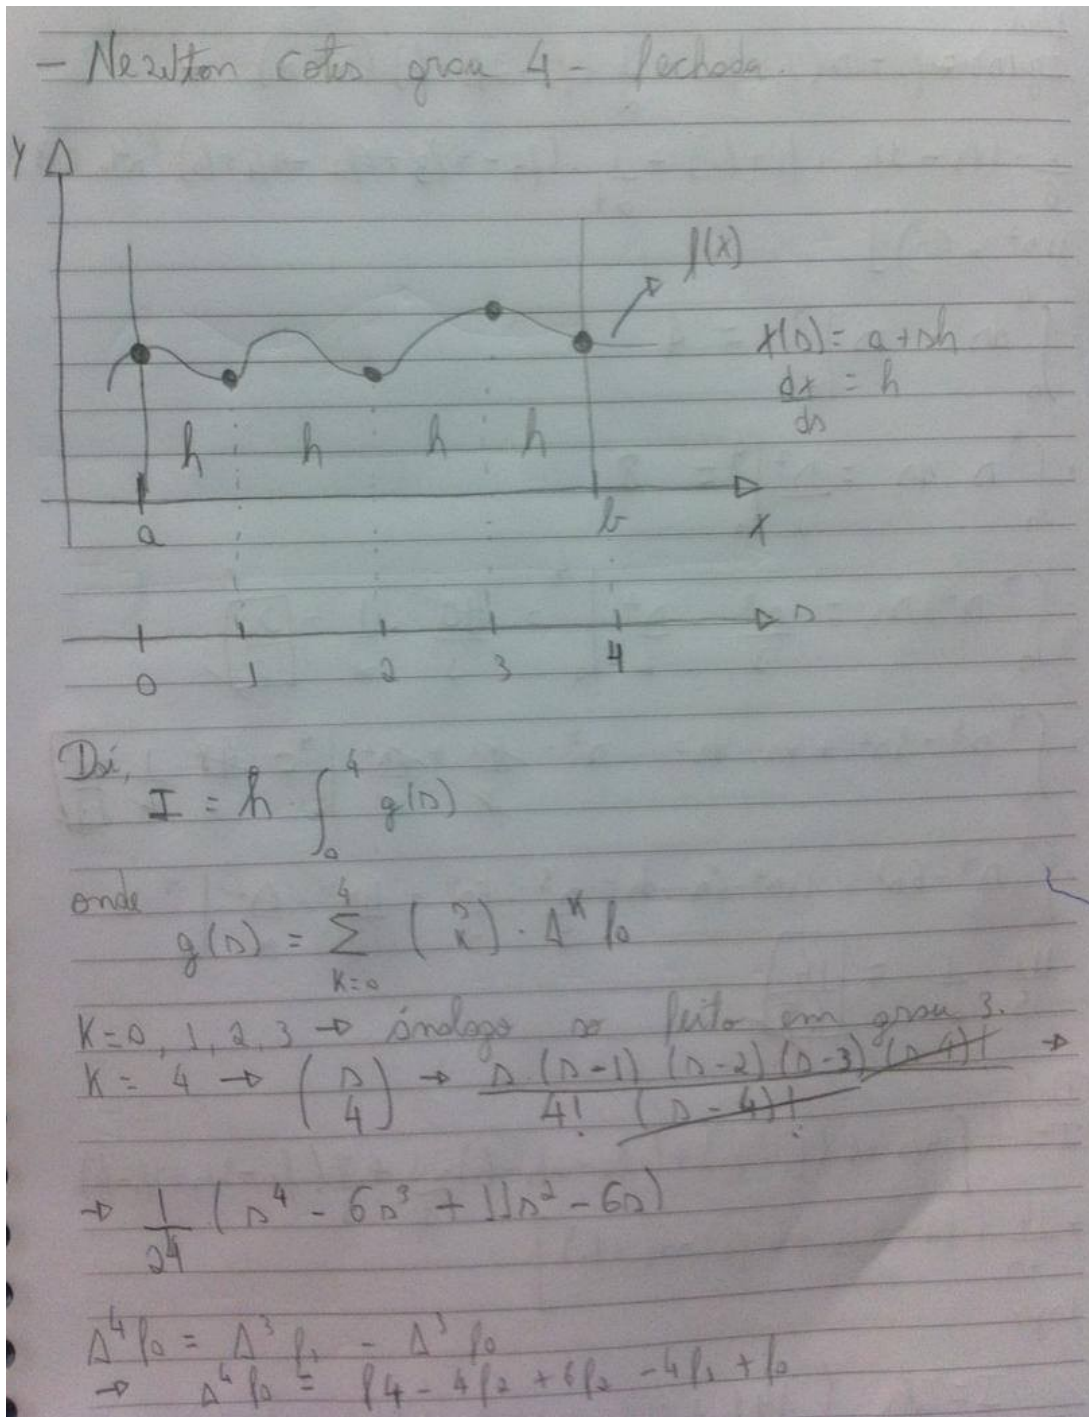 - Newton Cotes grau 4 - fechada.
Y
f(x)
x(s) = a + sh
dx/ds = h
h h h h
a b x
s
0 1 2 3 4
Daí,
I = h ∫₀⁴ g(s)
onde
g(s) = Σ_{K=0}^{4} (s K) · Δ^K f₀
K = 0, 1, 2, 3 → análogo ao feito em grau 3.
K = 4 → (s 4) → s (s-1) (s-2) (s-3) (s-4)! / 4! (s-4)! →
→ 1/24 (s⁴ - 6s³ + 11s² - 6s)
Δ⁴f₀ = Δ³f₁ - Δ³f₀
→ Δ⁴f₀ = f4 - 4f₂ + 6f₂ - 4f₁ + f₀